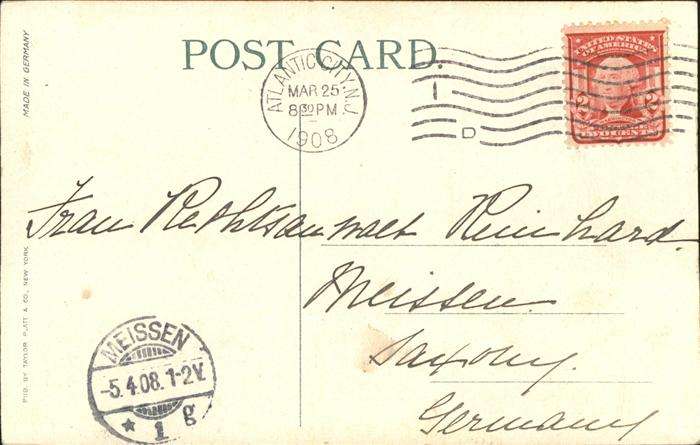 POST CARD.
MADE IN GERMANY
PUB. BY TAYLOR, PLATT & CO., NEW YORK.
ATLANTIC CITY, N.J.
MAR 25
8 30 PM
1908
1
D
UNITED STATES
OF AMERICA
2 2
TWO CENTS
Frau Rechtsanwalt Reinhard.
Meissen.
Saxony.
Germany
MEISSEN
-5.4.08. 1-2V.
* 1 g